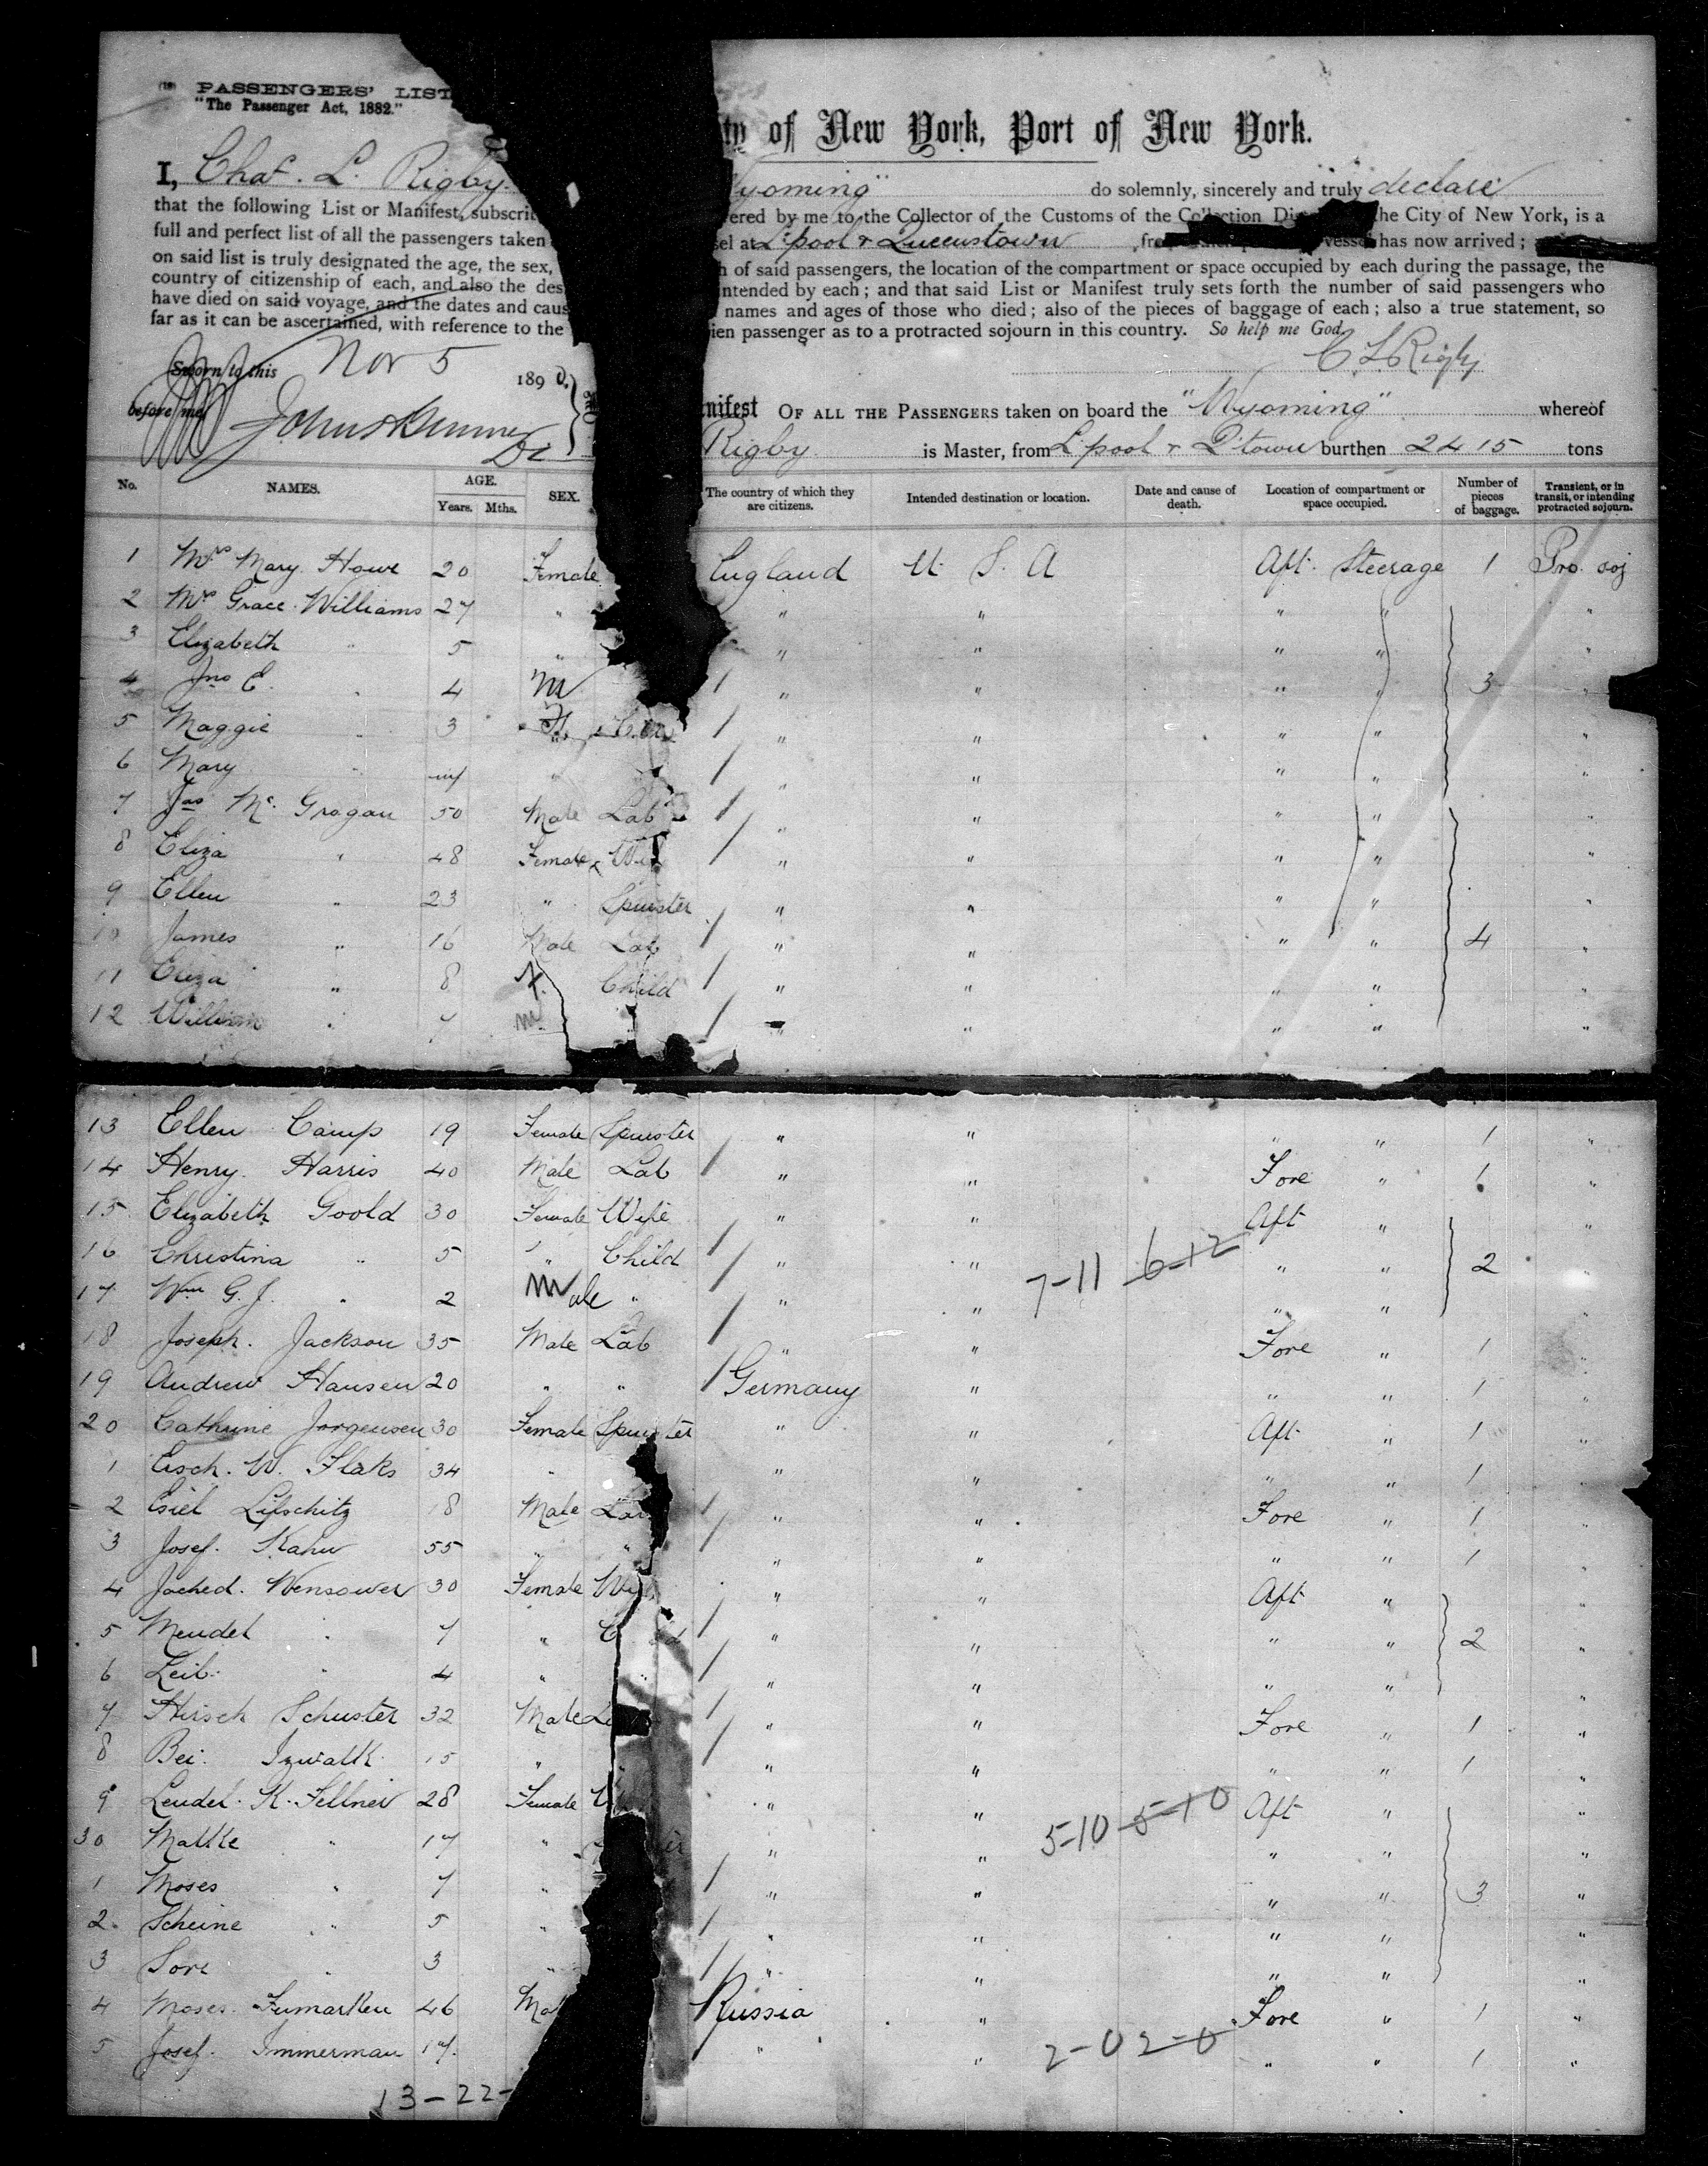 PASSENGERS' LIST
"The Passenger Act, 1882."
ty of New York, Port of New York.
I, Chas. L. Rigby. Wyoming" do solemnly, sincerely and truly declare
that the following List or Manifest, subscri ered by me to the Collector of the Customs of the Collection Dis the City of New York, is a
full and perfect list of all the passengers taken sel at L'pool & Queenstown, from vessel has now arrived;
on said list is truly designated the age, the sex, h of said passengers, the location of the compartment or space occupied by each during the passage, the
country of citizenship of each, and also the des intended by each; and that said List or Manifest truly sets forth the number of said passengers who
have died on said voyage, and the dates and caus names and ages of those who died; also of the pieces of baggage of each; also a true statement, so
far as it can be ascertained, with reference to the ien passenger as to a protracted sojourn in this country. So help me God.
C L Rigby
Sworn to this Nov 5 1890.
before me
nifest OF ALL THE PASSENGERS taken on board the "Wyoming" whereof
Rigby is Master, from L'pool & Q'town burthen 2415 tons
No. NAMES. AGE. Years. Mths. SEX. The country of which they are citizens. Intended destination or location. Date and cause of death. Location of compartment or space occupied. Number of pieces of baggage. Transient, or in transit, or intending protracted sojourn.
1 Mrs Mary Howe 20 Female England U. S. A Aft. Steerage 1 Pro. soj
2 Mrs Grace Williams 27 " " " " " "
3 Elizabeth " 5 " " " " " "
4 Jno E. " 4 M / " " " " 3 "
5 Maggie " 3 F. / " " " " "
6 Mary " inf " / " " " " "
7 Jas Mc Grogan 50 Male Lab / " " " " "
8 Eliza " 48 Female Wife / " " " " "
9 Ellen " 23 " Spinster " " " " "
10 James " 16 Male Lab / " " " " 4 "
11 Eliza " 8 F. Child / " " " " "
12 William " 7 M. / " " " " "
13 Ellen Camp 19 Female Spinster / " " " " 1 "
14 Henry Harris 40 Male Lab / " " Fore " 1 "
15 Elizabeth Goold 30 Female Wife " " Aft " "
16 Christina " 5 " Child / " " 7-11 6-12 " " 2 "
17 Wm G. J. " 2 Male " / " " " " "
18 Joseph Jackson 35 Male Lab / " " Fore " 1 "
19 Andrew Hansen 20 " " / Germany " " " 1 "
20 Cathrine Jorgensen 30 Female Spinster " " Aft " 1 "
1 W. Flaks 34 " " " " " 1 "
2 Lifschitz 18 Male Lab / " " Fore " 1 "
3 Josef Kahn 55 " " " " " " 1 "
4 Jached. Wensower 30 Female Wi " " Aft " "
5 Mendel " 7 " C d / " " " " 2 "
6 Leib " 4 " " / " " " " "
7 Hirsch Schuster 32 Male La / " " Fore " 1 "
8 15 " / " " " " 1 "
9 Lendel K. Fellner 28 Female W " " 5-10 5-10 Aft " "
30 Malke " 17 " " " " " "
1 Moses " 7 " / " " " " 3 "
2 Scheine " 5 " / " " " " "
3 Sore " 3 " / " " " " "
4 Moses Fumarken 46 Mal Russia " Fore " 1 "
5 Josef Immerman 17 " " 2-0 2-0 " " 1 "
13-22-